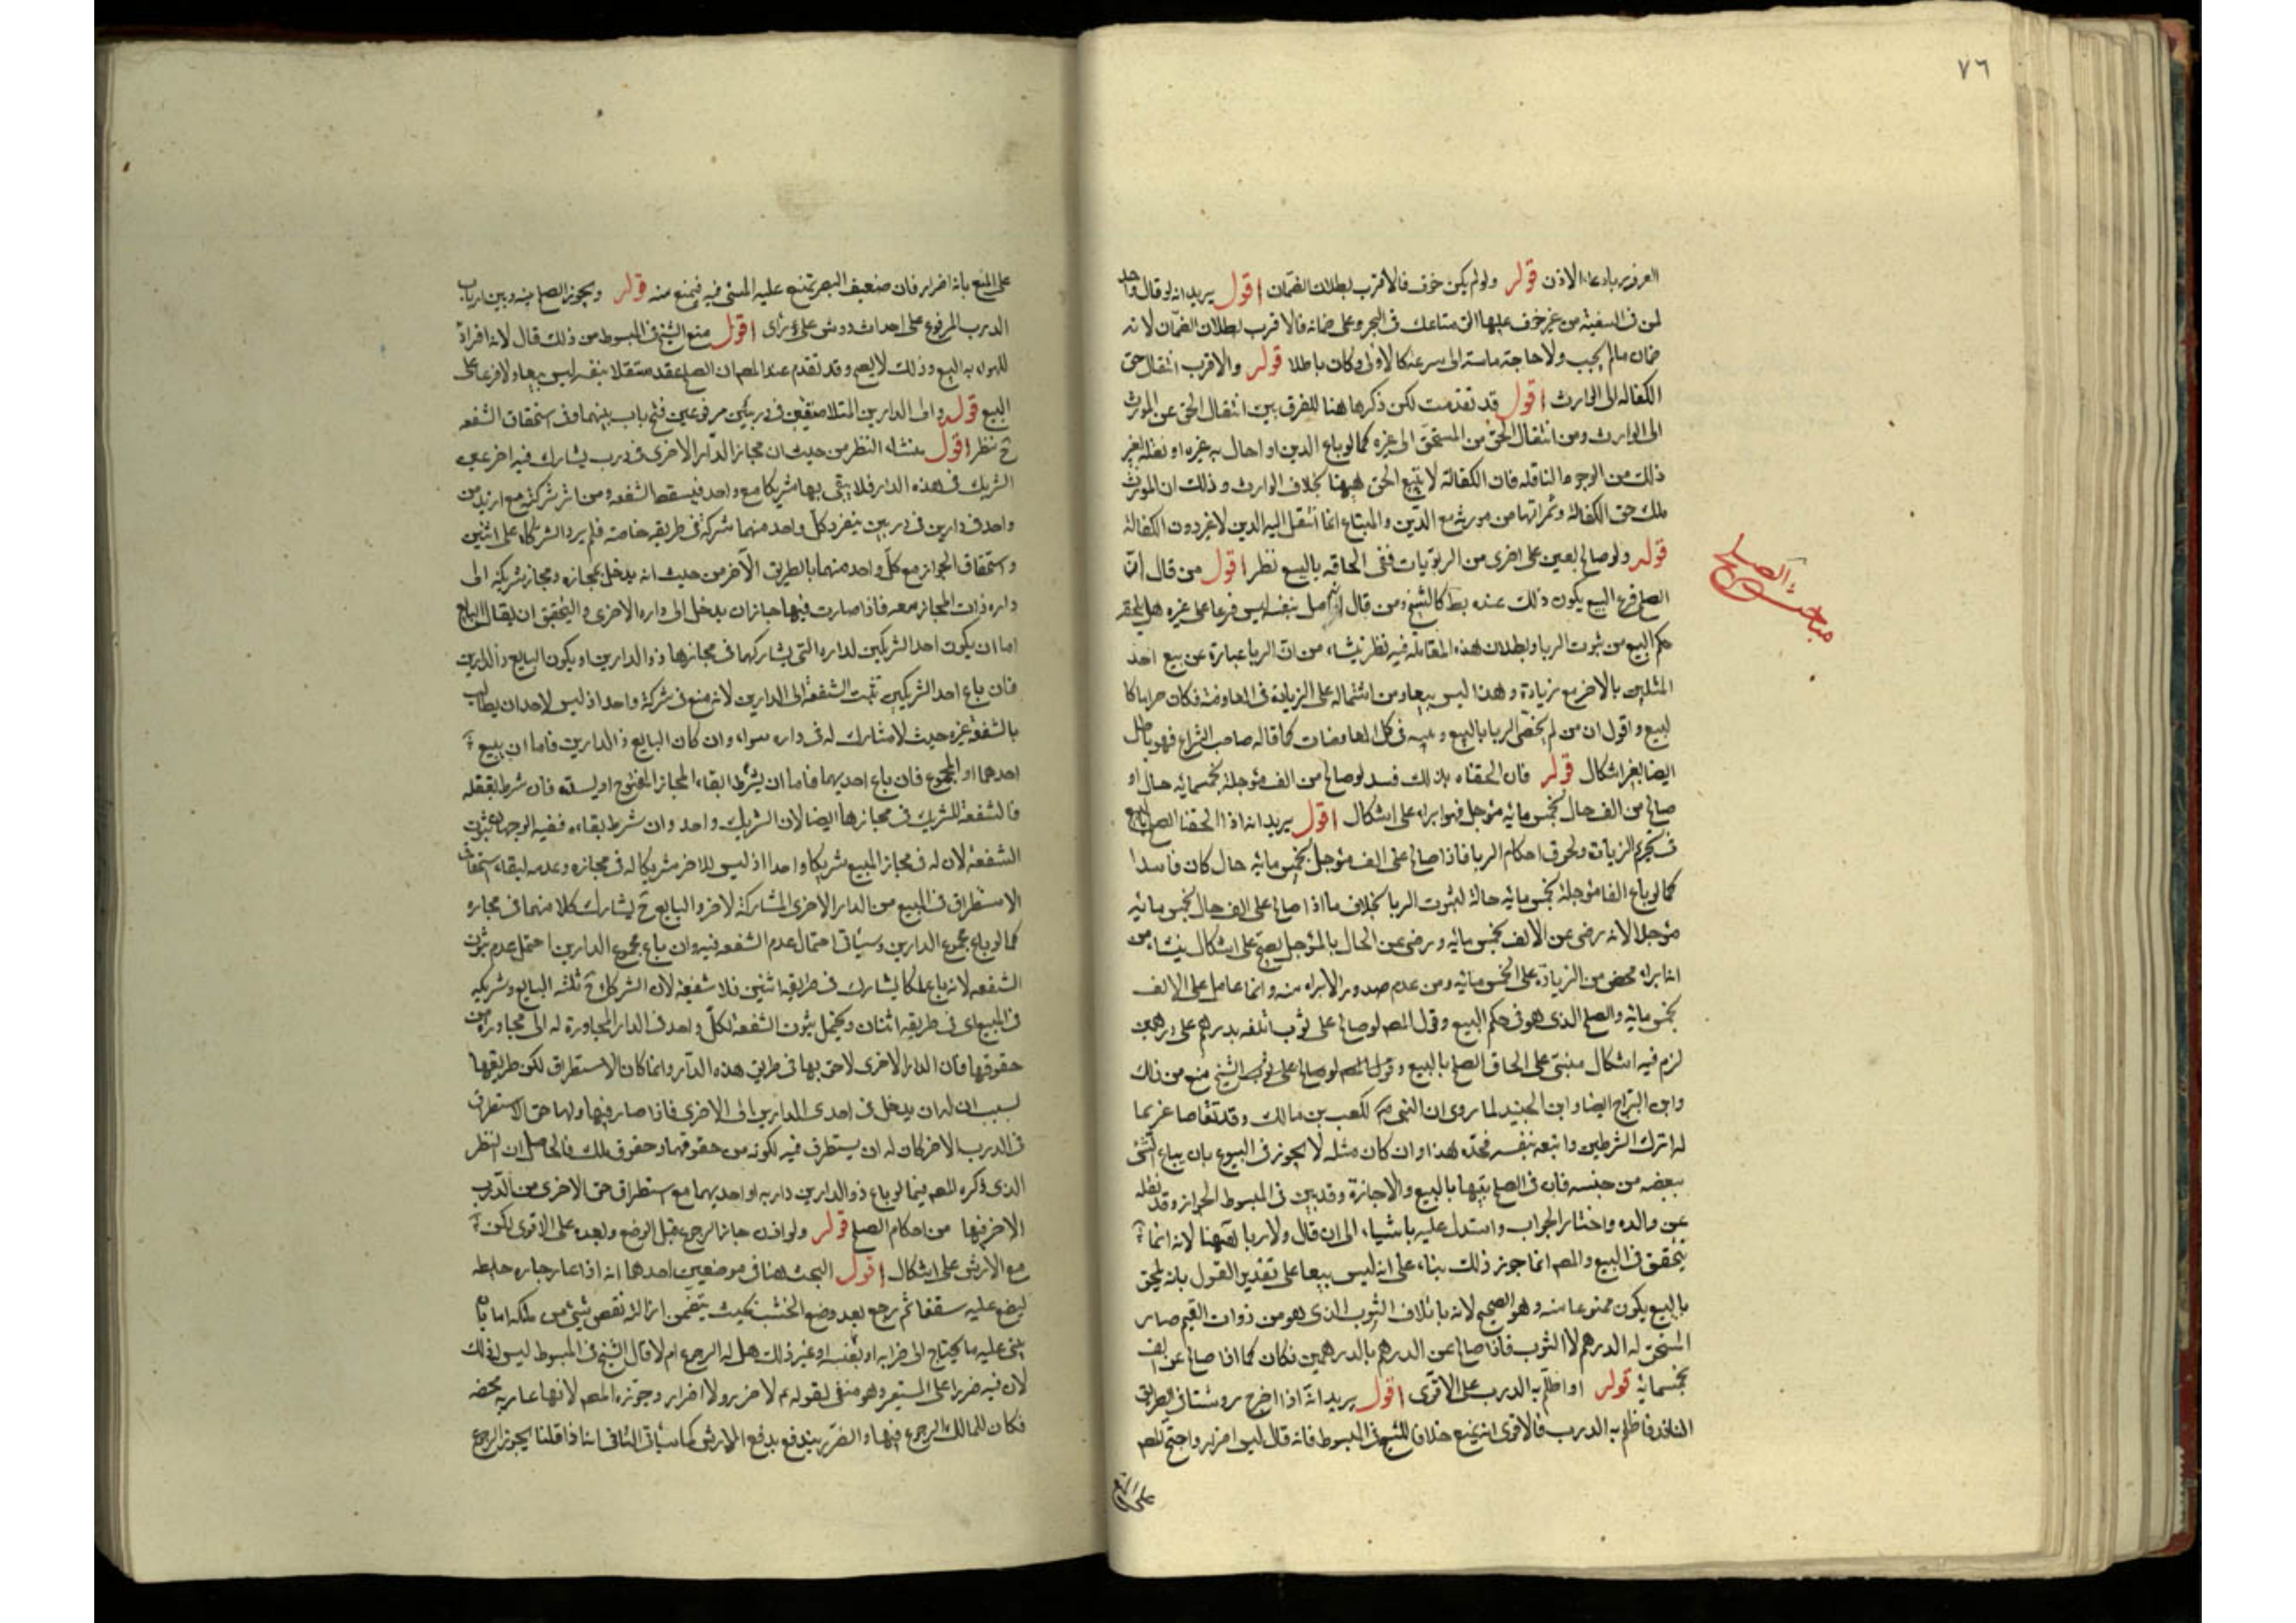 ٧٦
الاذن قوله ولو لم يكن خوف فالاقرب بطلان الضمان اقول يريد انه لو قال واحد
لمن في السفينة من غير خوف عليها الق متاعك في البحر وعلى ضمانه فالاقرب بطلان الضمان لانه
ضمان ما لم يجب ولا حاجة ماسة الى شرعيته كالاولى وكان باطلا قوله والاقرب انتقال حق
الكفالة الى الوارث اقول قد تقدمت لكن ذكرها هنا للفرق بين انتقال الحق عن المورث
الى الوارث ومن انتقال الحق من المستحق الى غيره كما لو باع الدين او احال به غيره او نقله بغير
ذلك من الوجوه الناقلة فان الكفالة لا تتبع الحق ههنا بخلاف الوارث وذلك ان المورث
ملك حق الكفالة وثمراتها من مورثه مع الدين والمبتاع انما انتقل اليه الدين لا غير دون الكفالة
قوله ولو صالح بعين على اخرى من الربويات ففي الحاقه بالبيع نظر اقول من قال ان
مباحث الصلح
الصلح فرع البيع يكون ذلك عنده بط كالشيخ ومن قال انه اصل بنفسه ليس فرعا على غيره هل يلحقه
حكم البيع من ثبوت الربا وبطلان هذه المقابلة فيه نظر ينشاء من ان الربا عبارة عن بيع احد
المثلين بالاخر مع زيادة وهذا ليس بيعا ومن اشتماله على الزيادة في المعاوضة فكان حراما كا
لبيع واقول ان من لم يخص الربا بالبيع وعممه في كل المعاوضات كما قاله صاحب الشرايع فهو باطل
ايضا بغير اشكال قوله فان الحقناه بذلك فسد لو صالح من الف مؤجلة بخمسمائه حال او
صالح من الف حال بخمس مائه مؤجل فهو ابراء على اشكال اقول يريد انه اذا الحقنا الصلح بالبيع
في تحريم الزيادة ولحوق احكام الربا فاذا صالح على الف مؤجل بخمس مائه حال كان فاسدا
كما لو باع الفا مؤجلة بخمس مائه حالة لثبوت الربا بخلاف ما اذا صالح على الف حال بخمس مائه
مؤجلا لانه رضى عن الالف بخمس مائه ورضى عن الحال بالمؤجل يصح على اشكال ينشاء من
انه ابراء محض من الزيادة على الخمس مائه ومن عدم صدور الابراء منه وانما عامل على الالف
بخمس مائه والصلح الذى هو في حكم البيع وقول المصم لو صالح على ثوب اتلفه بدرهم على درهمين
لزم فيه اشكال مبنى على الحاق الصلح بالبيع وقول المصم لو صالح على الشيخ منع من ذلك
وابن البراج ايضا وابن الجنيد لما روى ان النبي لكعب بن مالك وقد تقاضا غريما
له اترك الشرطين واتبعه بنفسه فحده هذا وان كان مثله لا يجوز في البيوع بان يباع الشئ
ببعضه من جنسه فان في الصلح شبها بالبيع والاجازة وقد بين في المبسوط الجواز وقد نقله
عن والده واختار الجواب واستدل عليه باشياء الى ان قال ولا ربا ههنا لانه انما
يتحقق في البيع والمصم انما جوز ذلك بناء على انه ليس بيعا على تقدير القول بانه يلحق
بالبيع يكون ممنوعا منه وهو الصحيح لانه باتلاف الثوب الذى هو من ذوات القيم صار
المستحق له الدرهم لا الثوب فاذا صالح عن الدرهم بالدرهمين فكان كما اذا صالح عن الف
بخمسمائة قوله او اظلم به الدرب على الاقوى اقول يريد انه اذا اخرج روشنا في الطريق
النافذ فاظلم به الدرب فالاقوى انه يمنع خلافا للشيخ في المبسوط فانه قال ليس اضرار واحتج المصم
على المنع
على المنع بانه اضرار فان ضعيف البصر يمتنع عليه المشى فيه فيمنع منه قوله ويجوز الصلح بينه وبين ارباب
الدرب المرفوع على احداث روشن على اقول منع الشيخ في المبسوط من ذلك قال لانه افراد
للهواء بالبيع وذلك لا يصح وقد تقدم عند المصم ان الصلح عقد مستقلا بنفسه ليس بيعا ولا فرعا على
البيع قوله وانى الدارين المتلاصقتين في دربين مرفوعين فتح باب بينهما وفى استحقاق الشفعه
ح نظر اقول منشاء النظر من حيث ان مجاز الدار الاخرى في درب يشارك فيه اخر غير
الشريك في هذه الدار فلا يبقى بها شريكا مع واحد فيسقط الشفعه ومن اثر شركة مع ازيد من
واحد في دارين في دربين ينفرد كل واحد منهما شركة في طريقه خاصة فلم يرد الشركاء على اثنين
واستحقاق الجواز مع كل واحد منهما بالطريق الاخر من حيث انه يدخل بمجازه ومجاز شريكه الى
داره ذات المجاز معه فاذا صارت فيها جاز ان يدخل الى داره الاخرى والتحقيق ان يقال البايع
اما ان يكون احد الشريكين لداره التى يشاركهما في مجازها ذو الدارين او يكون البايع ذا الدارين
فان باع احد الشريكين تثبت الشفعة الى الدارين لانه منع في شركة واحد اذ ليس لاحد ان يطالب
بالشفعة غيره حيث لا مشارك له في داره سواه وان كان البايع ذ الدارين فاما ان يبيع
احدهما او المجموع فان باع احديهما فاما ان يشرط ابقاء المجاز المفتوح او يسده فان شرط
فالشفعة للشريك في مجازها ايضا لان الشريك واحد وان شرط بقاءه ففيه الوجهان ثبوت
الشفعة لان له في مجاز المبيع شريكا واحدا اذ ليس للاخر شريكا له في مجازه وعدمه لبقاء استحقاق
الاستطراق في المبيع من الدار الاخرى المشاركة لاخر والبايع ح يشارك كلا منهما في مجازه
كما لو باع مجموع الدارين وسياتى احتمال عدم الشفعه فيه وان باع مجموع الدارين احتمل عدم ثبوت
الشفعه لانه باع ملكا يشارك في طريقه اثنين فلا شفعة لان الشركاء ح ثلثه البايع وشريكيه
في المبيع اى في طريقه اثنان ويحتمل ثبوت الشفعة لكل واحد في الدار المجاورة له
حقوقها فان الدار الاخرى لاحق بها في طريق هذه الدار وانما كان الاستطراق لكن طريقها
لسبب ان له ان يدخل في احدى الدارين الى الاخرى فاذا صار فيها ولها حق الاستطراق
في الدرب الاخر كان له ان يستطرق فيه لكونه من حقوقها وحقوق ملك فالحاصل ان النظر
الذى ذكره المصم فيما لو باع ذو الدارين داريه او احديهما مع استطراق حق الاخرى من الدرب
الاخر فيها من احكام الصلح قوله ولو اذن جاز الرجوع قبل الوضع وبعده على الاقوى لكن
مع الارش على اشكال اقول البحث هنا في موضعين احدهما انه اذا عار جاره حايطه
ليضع عليه سقفا ثم رجع بعد وضع الخشب بحيث يتضمن ازالة نقص شئ من ملكه اما بان
يبنى عليه ما يحتاج الى خرابه او بنفسه او غير ذلك هل له الرجوع ام لا قال الشيخ في المبسوط ليس له ذلك
لان فيه ضررا على المستعير وهو منفى لقوله لا ضرر ولا اضرار وجوزه المصم لانها عارية محضه
فكان للمالك الرجوع فيها والضرر يندفع بدفع الارش كما سياتى الثانى انا اذا قلنا يجوز الرجوع